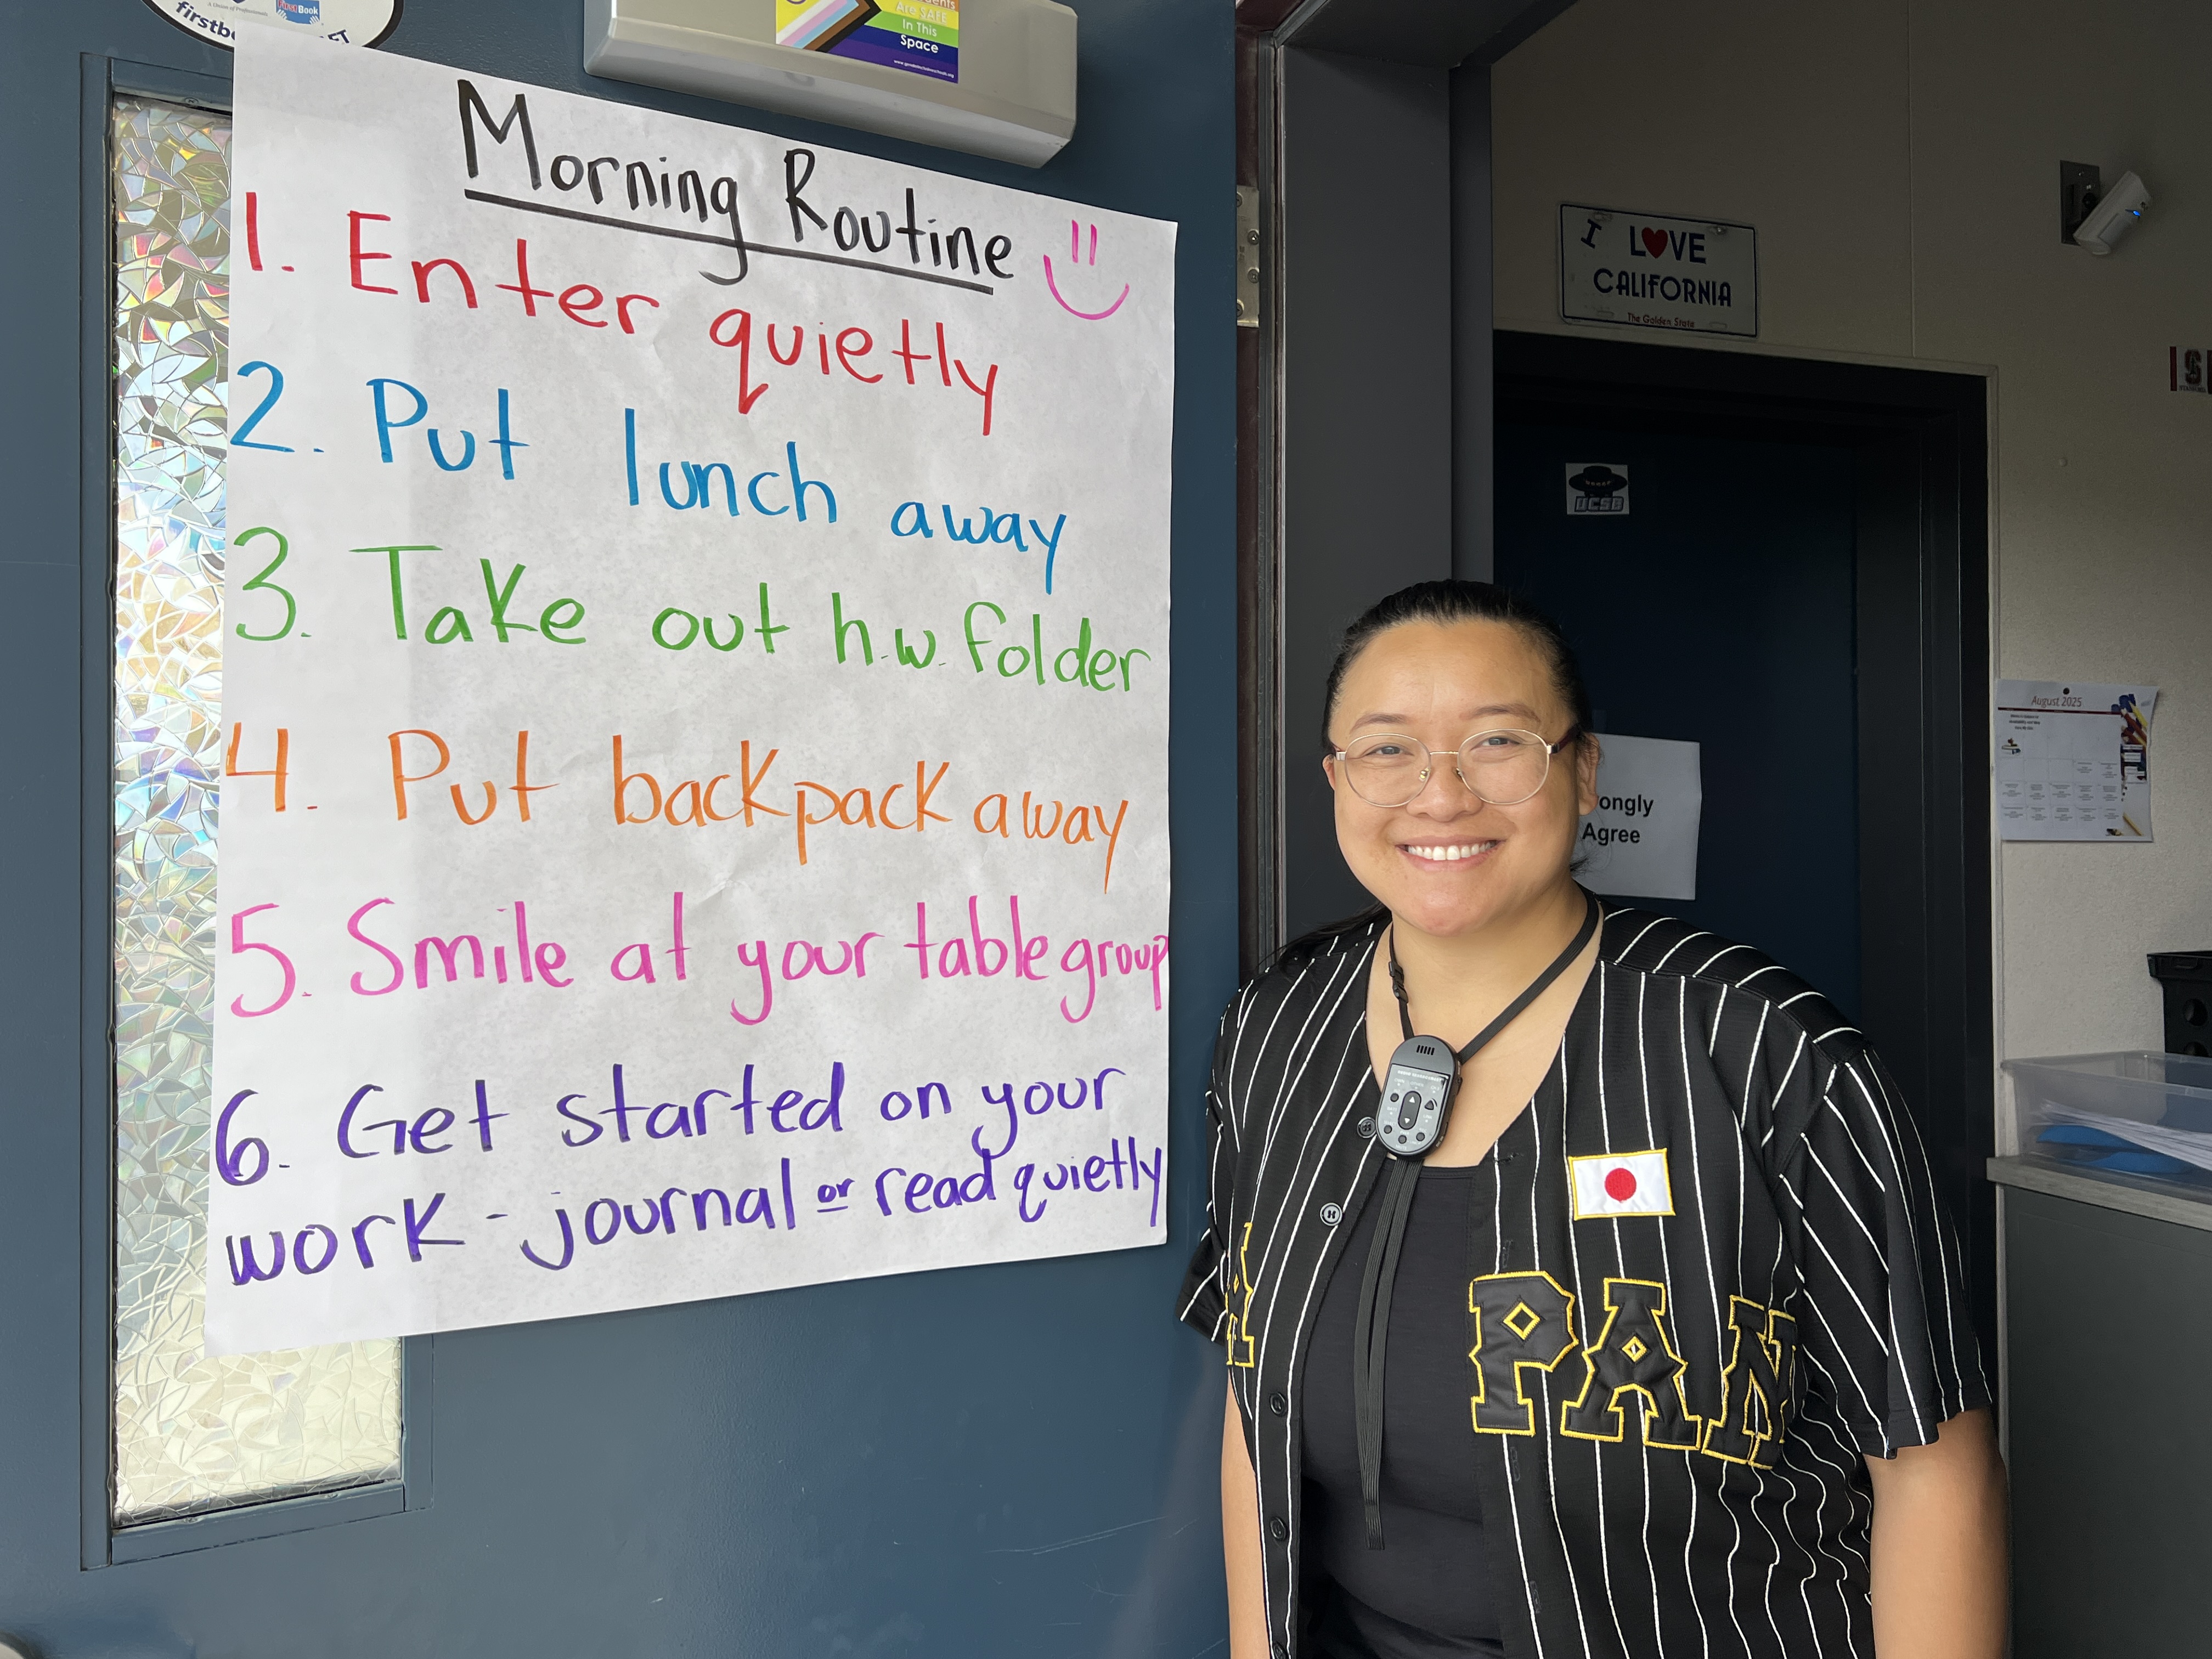 Morning Routine
1. Enter quietly
2. Put lunch away
3. Take out h.w. folder
4. Put backpack away
5. Smile at your table group
6. Get started on your
work - journal or read quietly
FirstBook
Are SAFE
In This
Space
I LOVE
CALIFORNIA
The Golden State
UCSB
August 2025
ongly
Agree
PAN